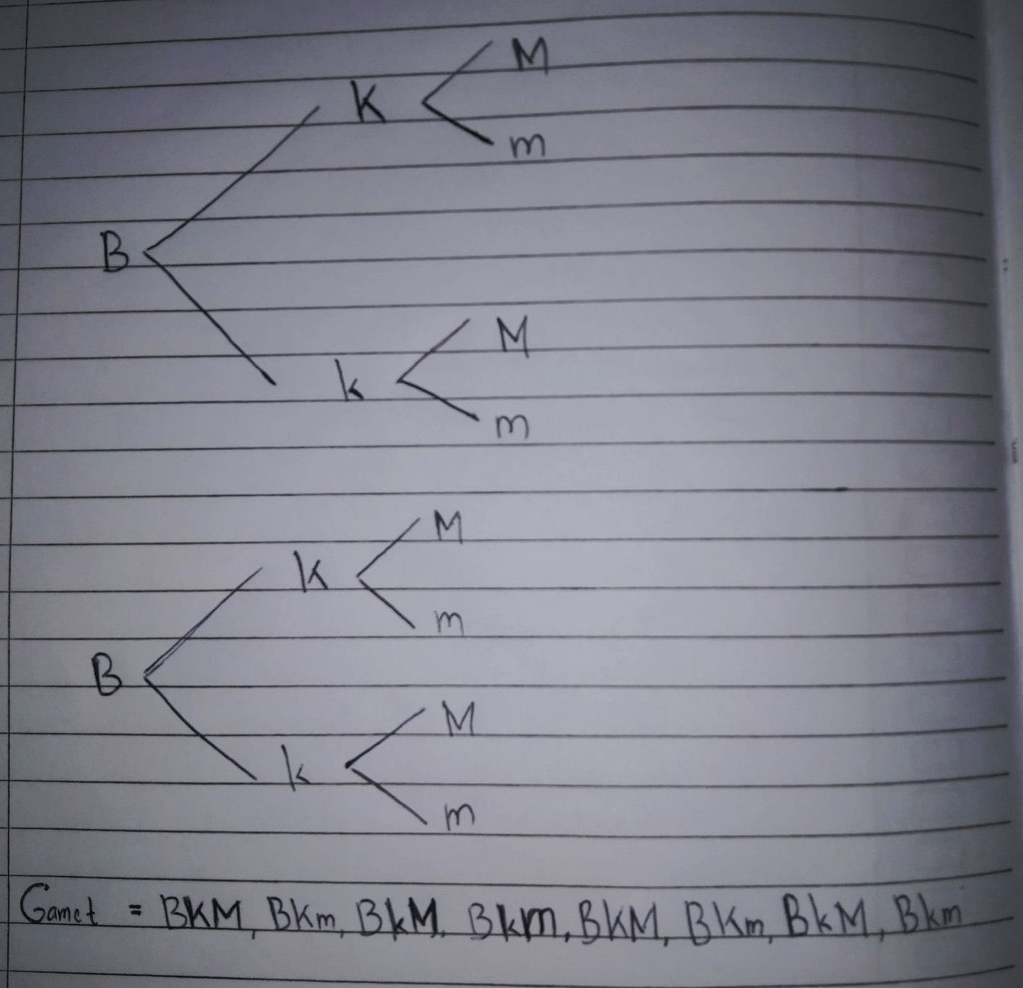 K M
m
B
k M
m
K M
m
B
k M
m
Gamet = BKM, BKm, BkM, Bkm, BKM, BKm, BkM, Bkm